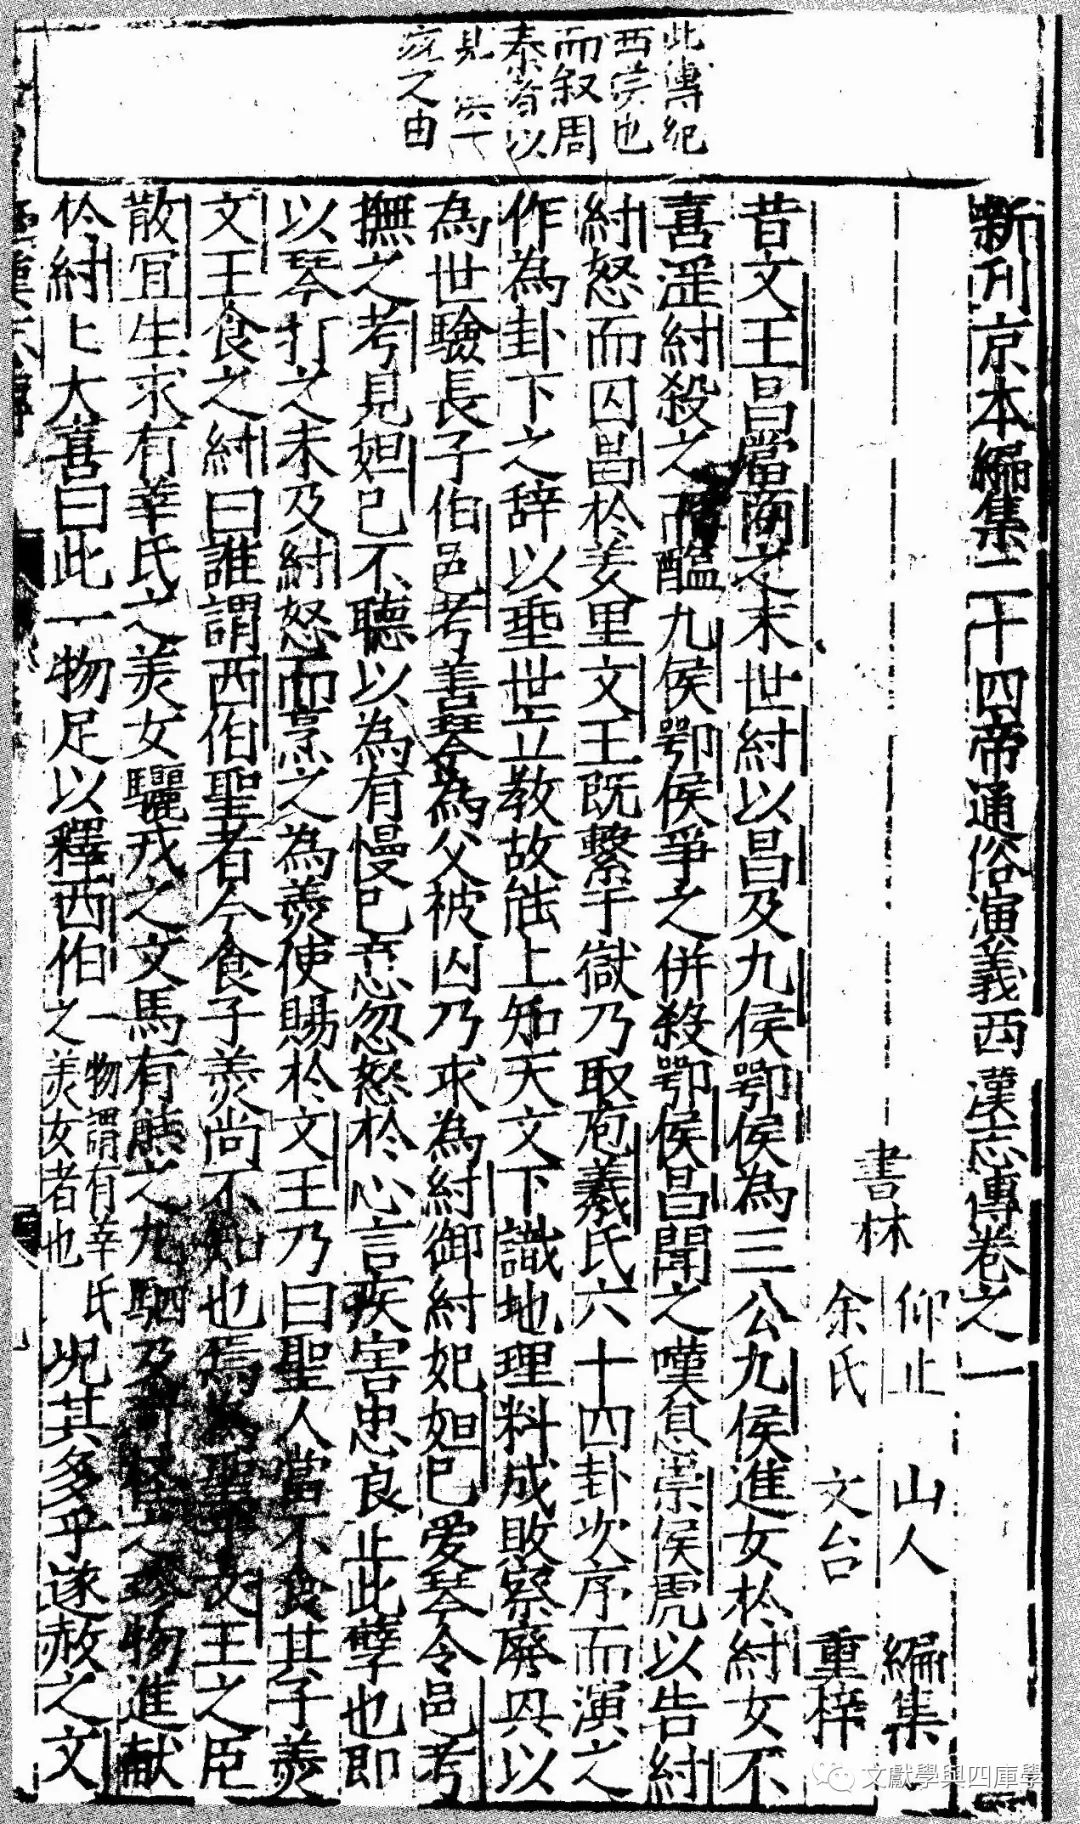 此傳紀
西漢也
而叙周
秦者以
見
痰之由
新刊京本編集二十四帝通俗演義西漢志傳卷之一
仰止山人編集
書林
余氏文台重梓
昔文王昌當商之末世紂以昌及九侯鄂侯為三公九侯進女於紂女不
喜淫紂殺之而醢九侯鄂侯爭之併殺鄂侯昌聞之嘆息崇侯虎以告紂
紂怒而囚昌於羑里文王既繫于獄乃取庖羲氏六十四卦次序而演之
作為卦下之辞以垂世立教故能上知天文下識地理料成敗察廢興以
為世驗長子伯邑考善琴為父被囚乃求為紂御紂妃妲已愛琴令邑考
撫之考見妲已不聽以為有慢已意忽怒於心言疾害忠良止此孽也即
以琴打之未及紂怒而烹之為羹使賜於文王乃曰聖人當不食其子羹
文王食之紂曰誰謂西伯聖者今食子羹尚不知也焉為聖乎文王之臣
散宜生求有莘氏之美女驪戎之文馬有熊之九駟及奇怪之珍物進献
於紂上大喜曰此一物足以釋西伯一物謂有莘氏之美女者也况其多乎遂赦之文
文獻學與四庫學